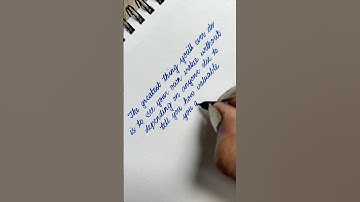 The greatest thing you'll ever do
is to see your own value without
depending on anyone else to
tell you how valuable
you a